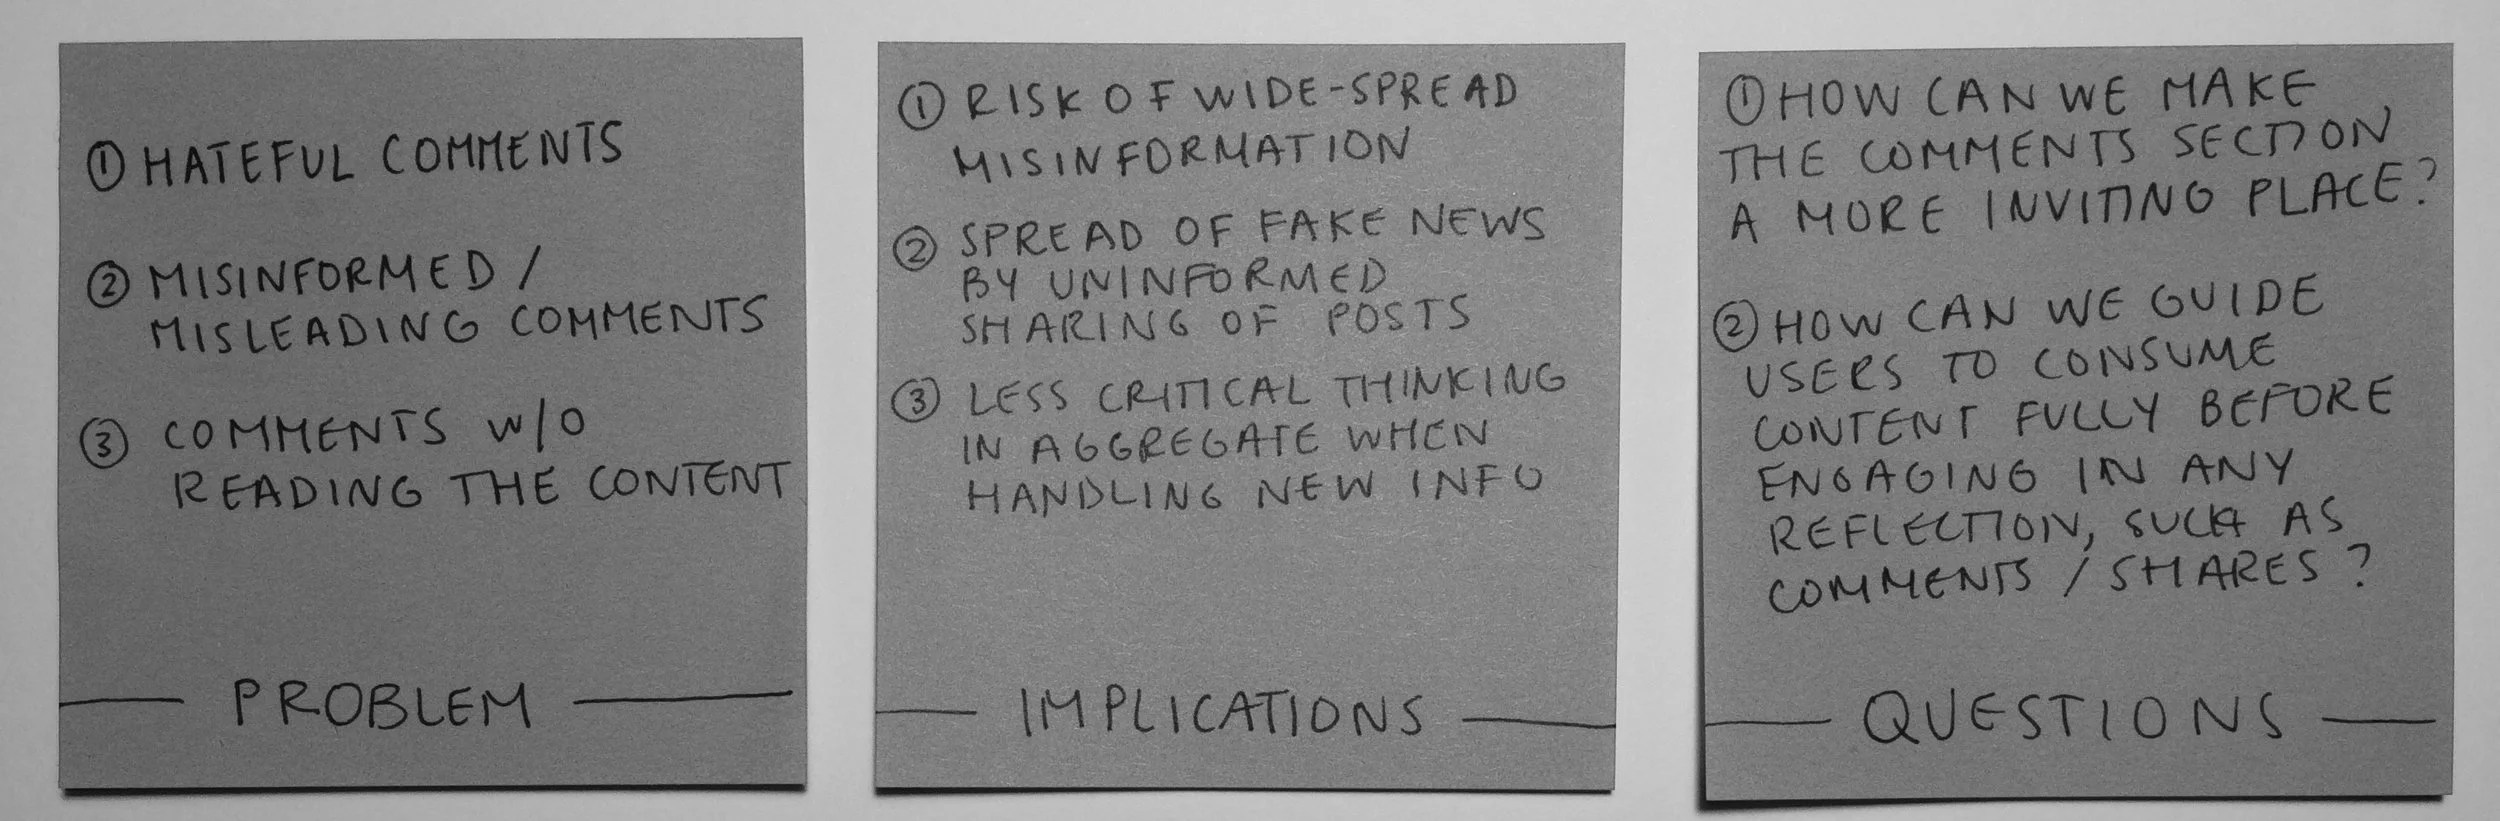 ① HATEFUL COMMENTS
② MISINFORMED /
MISLEADING COMMENTS
③ COMMENTS W/O
READING THE CONTENT
PROBLEM
① RISK OF WIDE-SPREAD
MISINFORMATION
② SPREAD OF FAKE NEWS
BY UNINFORMED
SHARING OF POSTS
③ LESS CRITICAL THINKING
IN AGGREGATE WHEN
HANDLING NEW INFO
IMPLICATIONS
① HOW CAN WE MAKE
THE COMMENTS SECTION
A MORE INVITING PLACE?
② HOW CAN WE GUIDE
USERS TO CONSUME
CONTENT FULLY BEFORE
ENGAGING IN ANY
REFLECTION, SUCH AS
COMMENTS / SHARES?
QUESTIONS